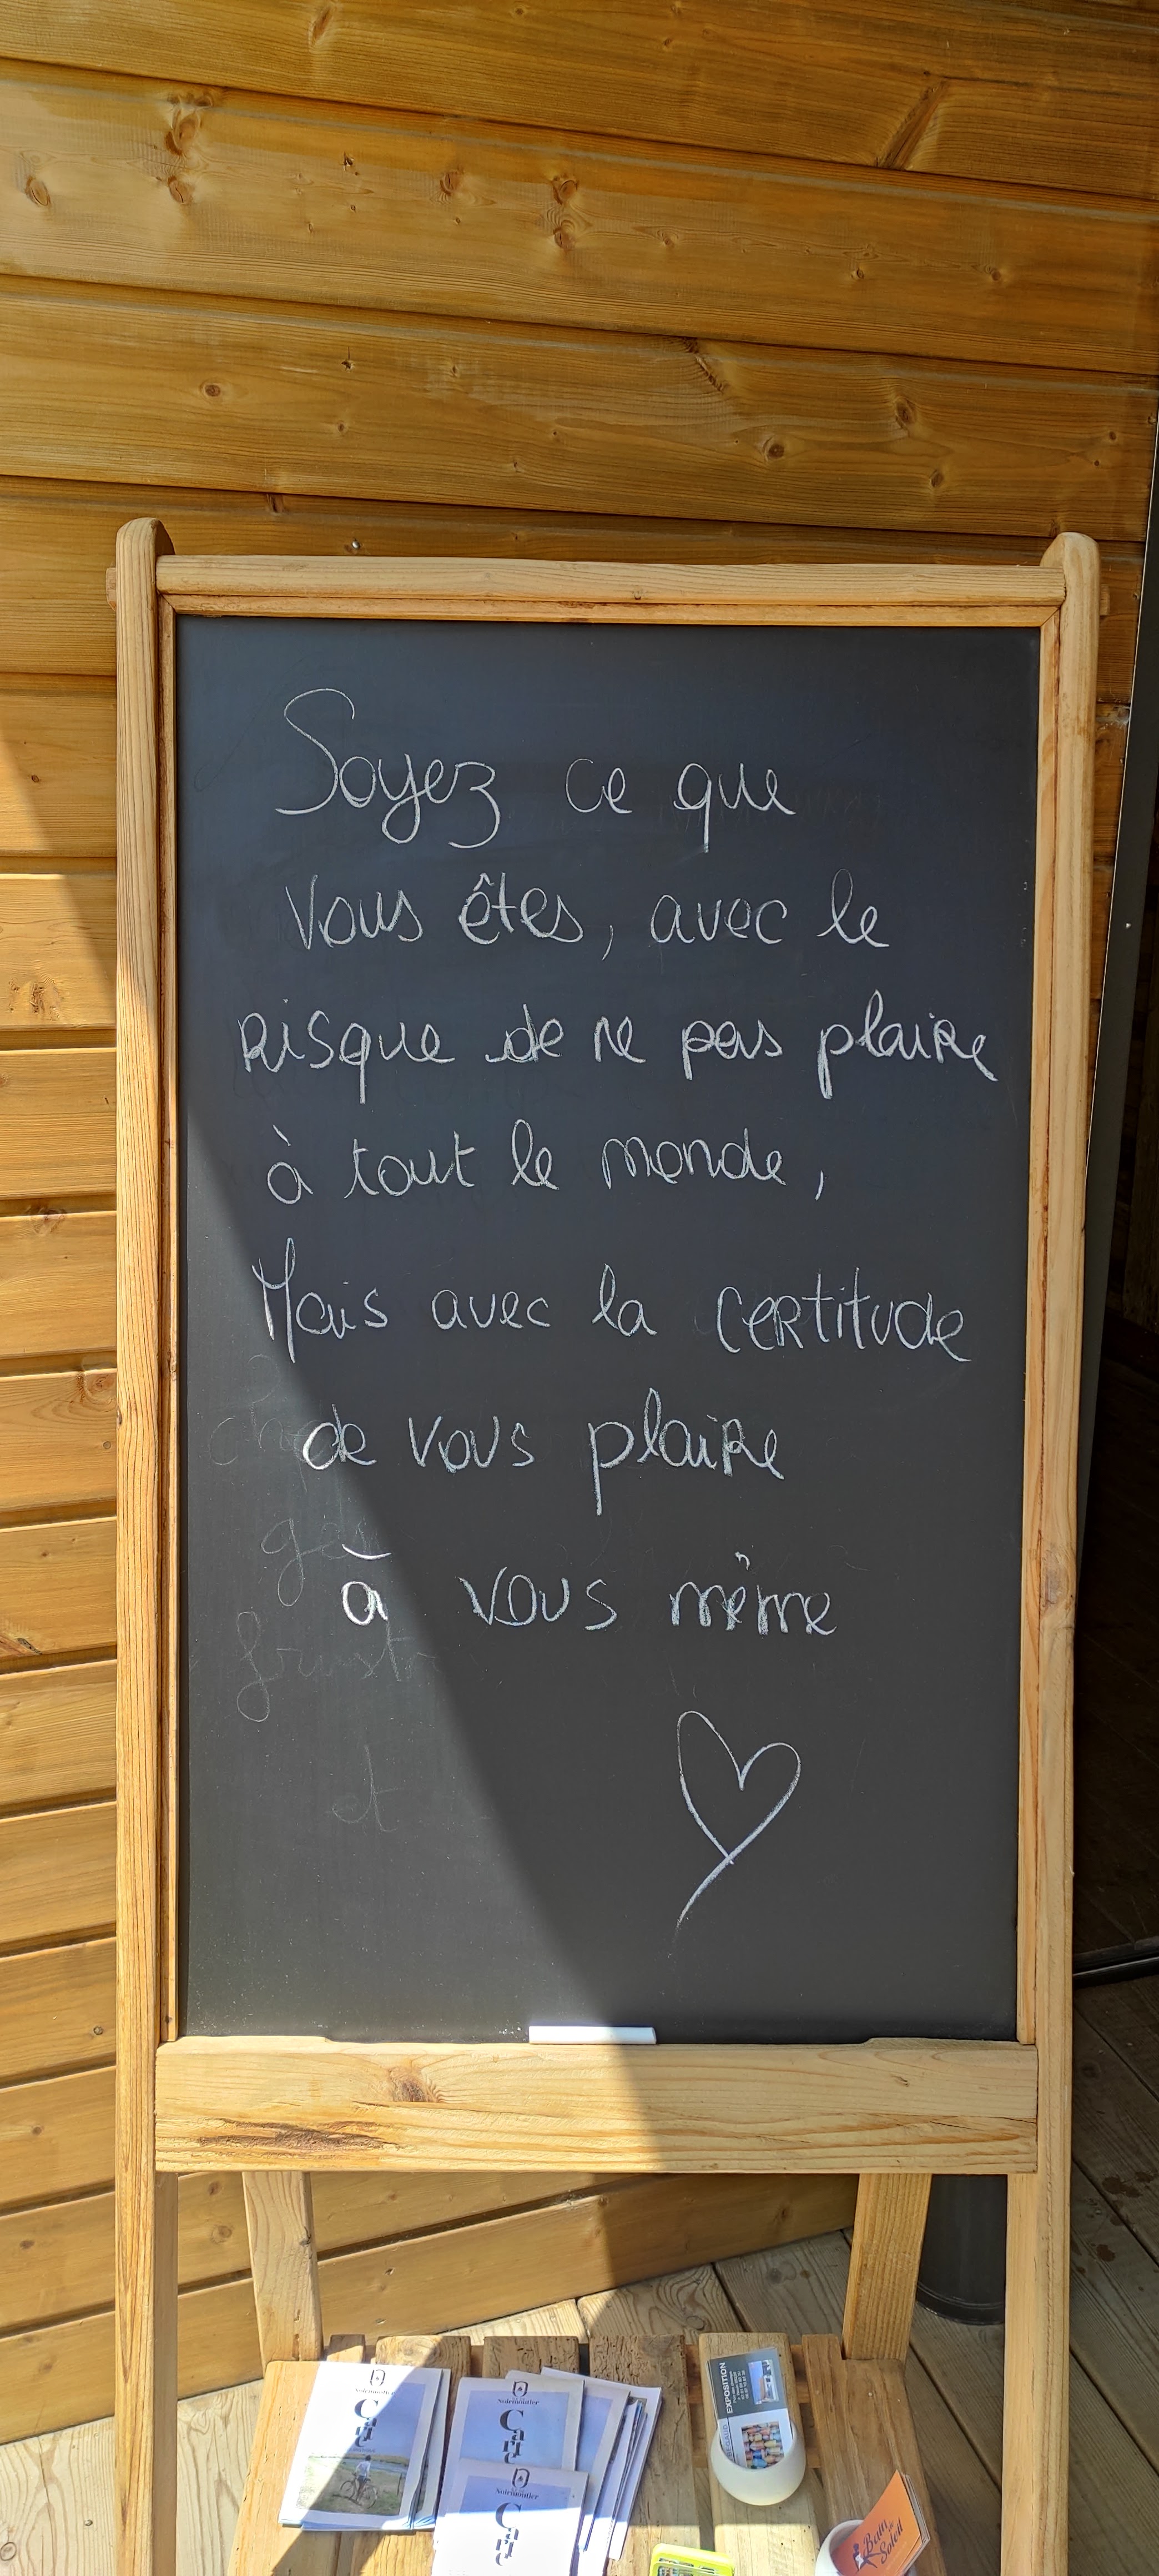 Soyez ce que
Vous êtes, avec le
Risque de ne pas plaire
à tout le monde,
Mais avec la certitude
de vous plaire
à vous même
Noirmoutier
Carte
Noirmoutier
Carte
Noirmoutier
Carte
EXPOSITION
Beau
Soleil